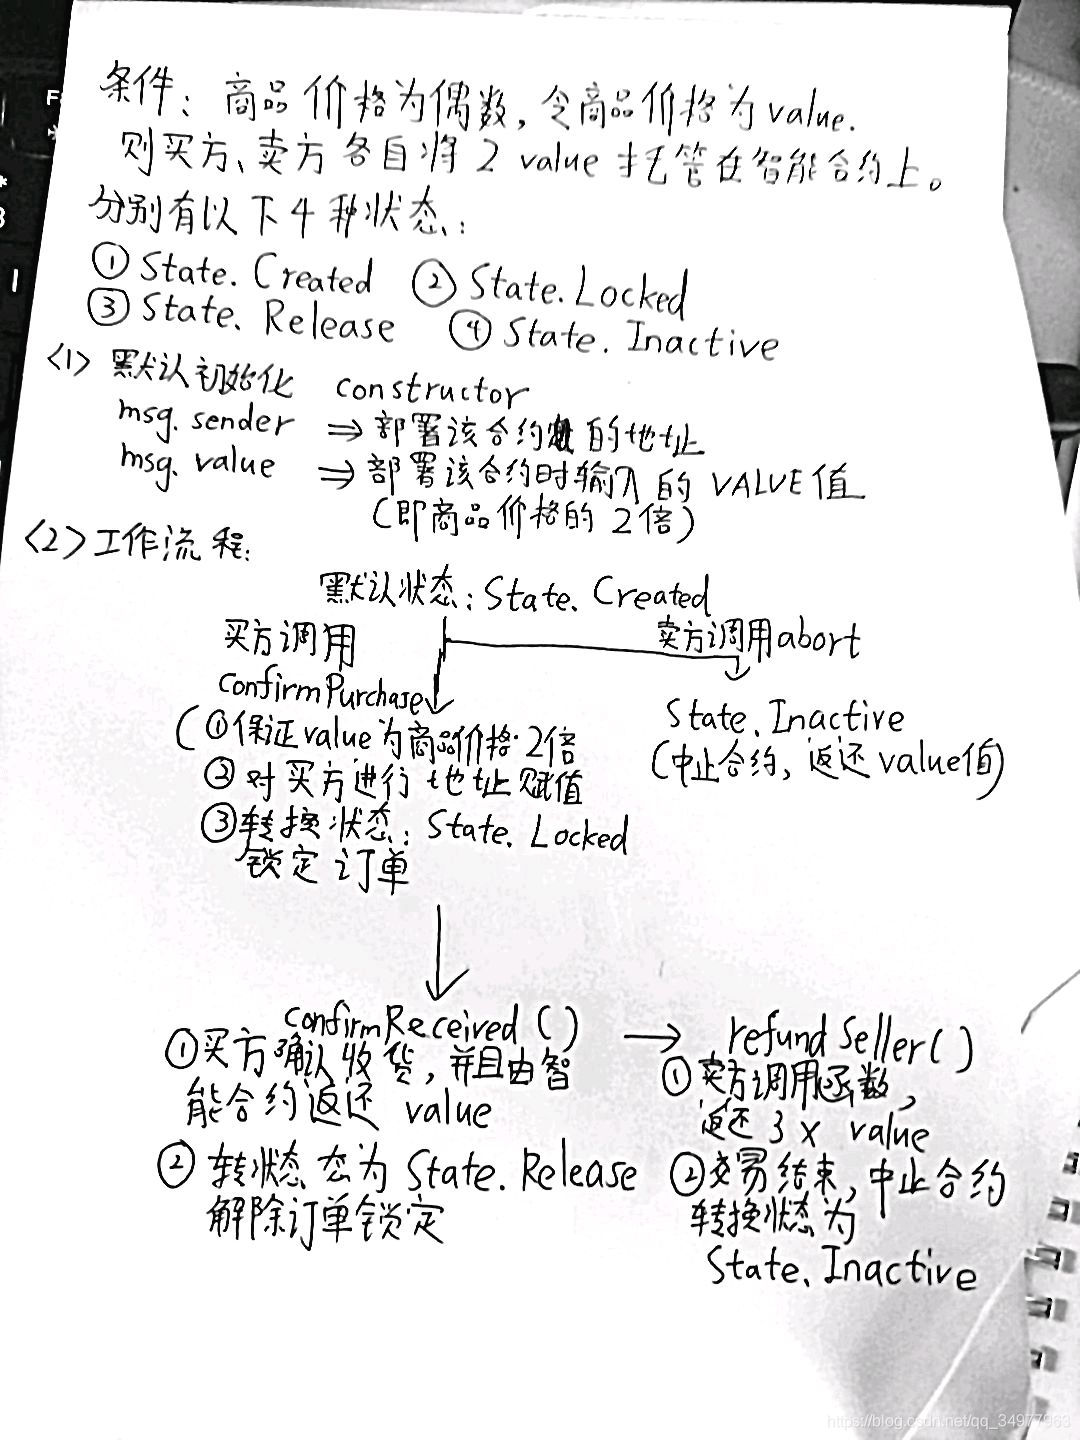 条件：商品价格为偶数，令商品价格为value.
则买方、卖方各自将2 value托管在智能合约上。
分别有以下4种状态：
① State. Created ② State. Locked
③ State. Release ④ State. Inactive
<1> 默认初始化 constructor
msg. sender ⇒ 部署该合约的地址
msg. value ⇒ 部署该合约时输入的 VALUE值
(即商品价格的2倍)
<2> 工作流程：
默认状态：State. Created
买方调用 卖方调用abort
confirmPurchase
State. Inactive
(①保证value为商品价格·2倍
(中止合约，返还value值)
② 对买方进行地址赋值
③转换状态：State. Locked
锁定订单
confirmReceived () → refund Seller()
①买方确认收货，并且由智
能合约返还 value
① 卖方调用函数，
返还 3 x value
② 转状态态为 State. Release
解除订单锁定
②交易结束，中止合约
转换状态为
State. Inactive
https://blog.csdn.net/qq_34977963